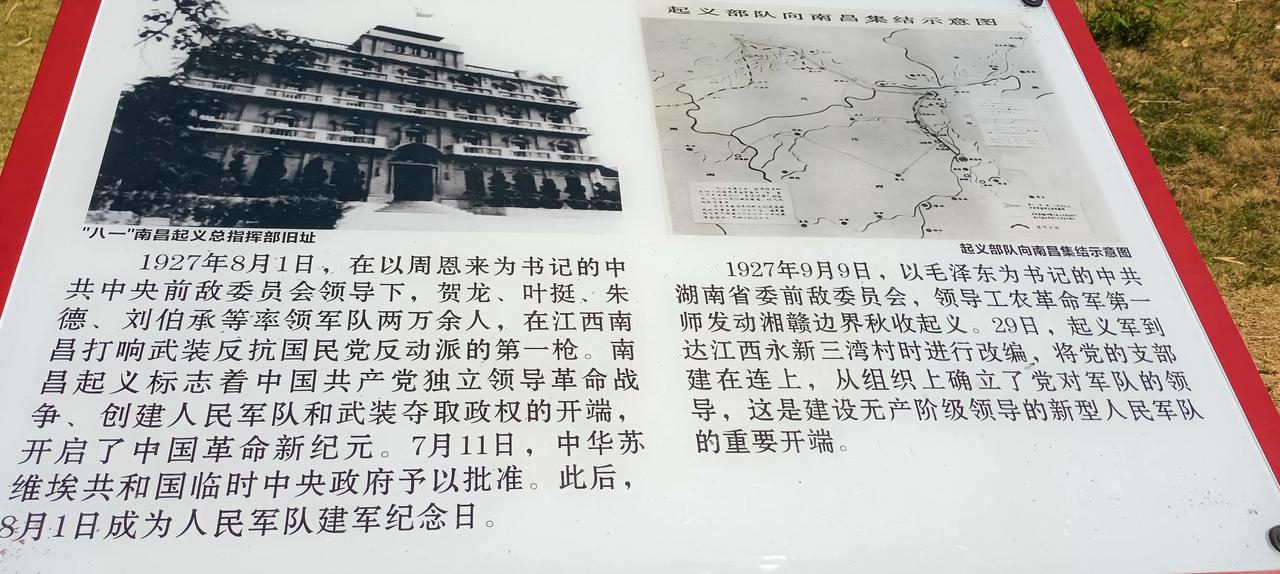 起义部队向南昌集结示意图
"八一"南昌起义总指挥部旧址
1927年8月1日，在以周恩来为书记的中
共中央前敌委员会领导下，贺龙、叶挺、朱
德、刘伯承等率领军队两万余人，在江西南
昌打响武装反抗国民党反动派的第一枪。南
昌起义标志着中国共产党独立领导革命战
争、创建人民军队和武装夺取政权的开端，
开启了中国革命新纪元。7月11日，中华苏
维埃共和国临时中央政府予以批准。此后，
8月1日成为人民军队建军纪念日。
起义部队向南昌集结示意图
1927年9月9日，以毛泽东为书记的中共
湖南省委前敌委员会，领导工农革命军第一
师发动湘赣边界秋收起义。29日，起义军到
达江西永新三湾村时进行改编，将党的支部
建在连上，从组织上确立了党对军队的领
导，这是建设无产阶级领导的新型人民军队
的重要开端。